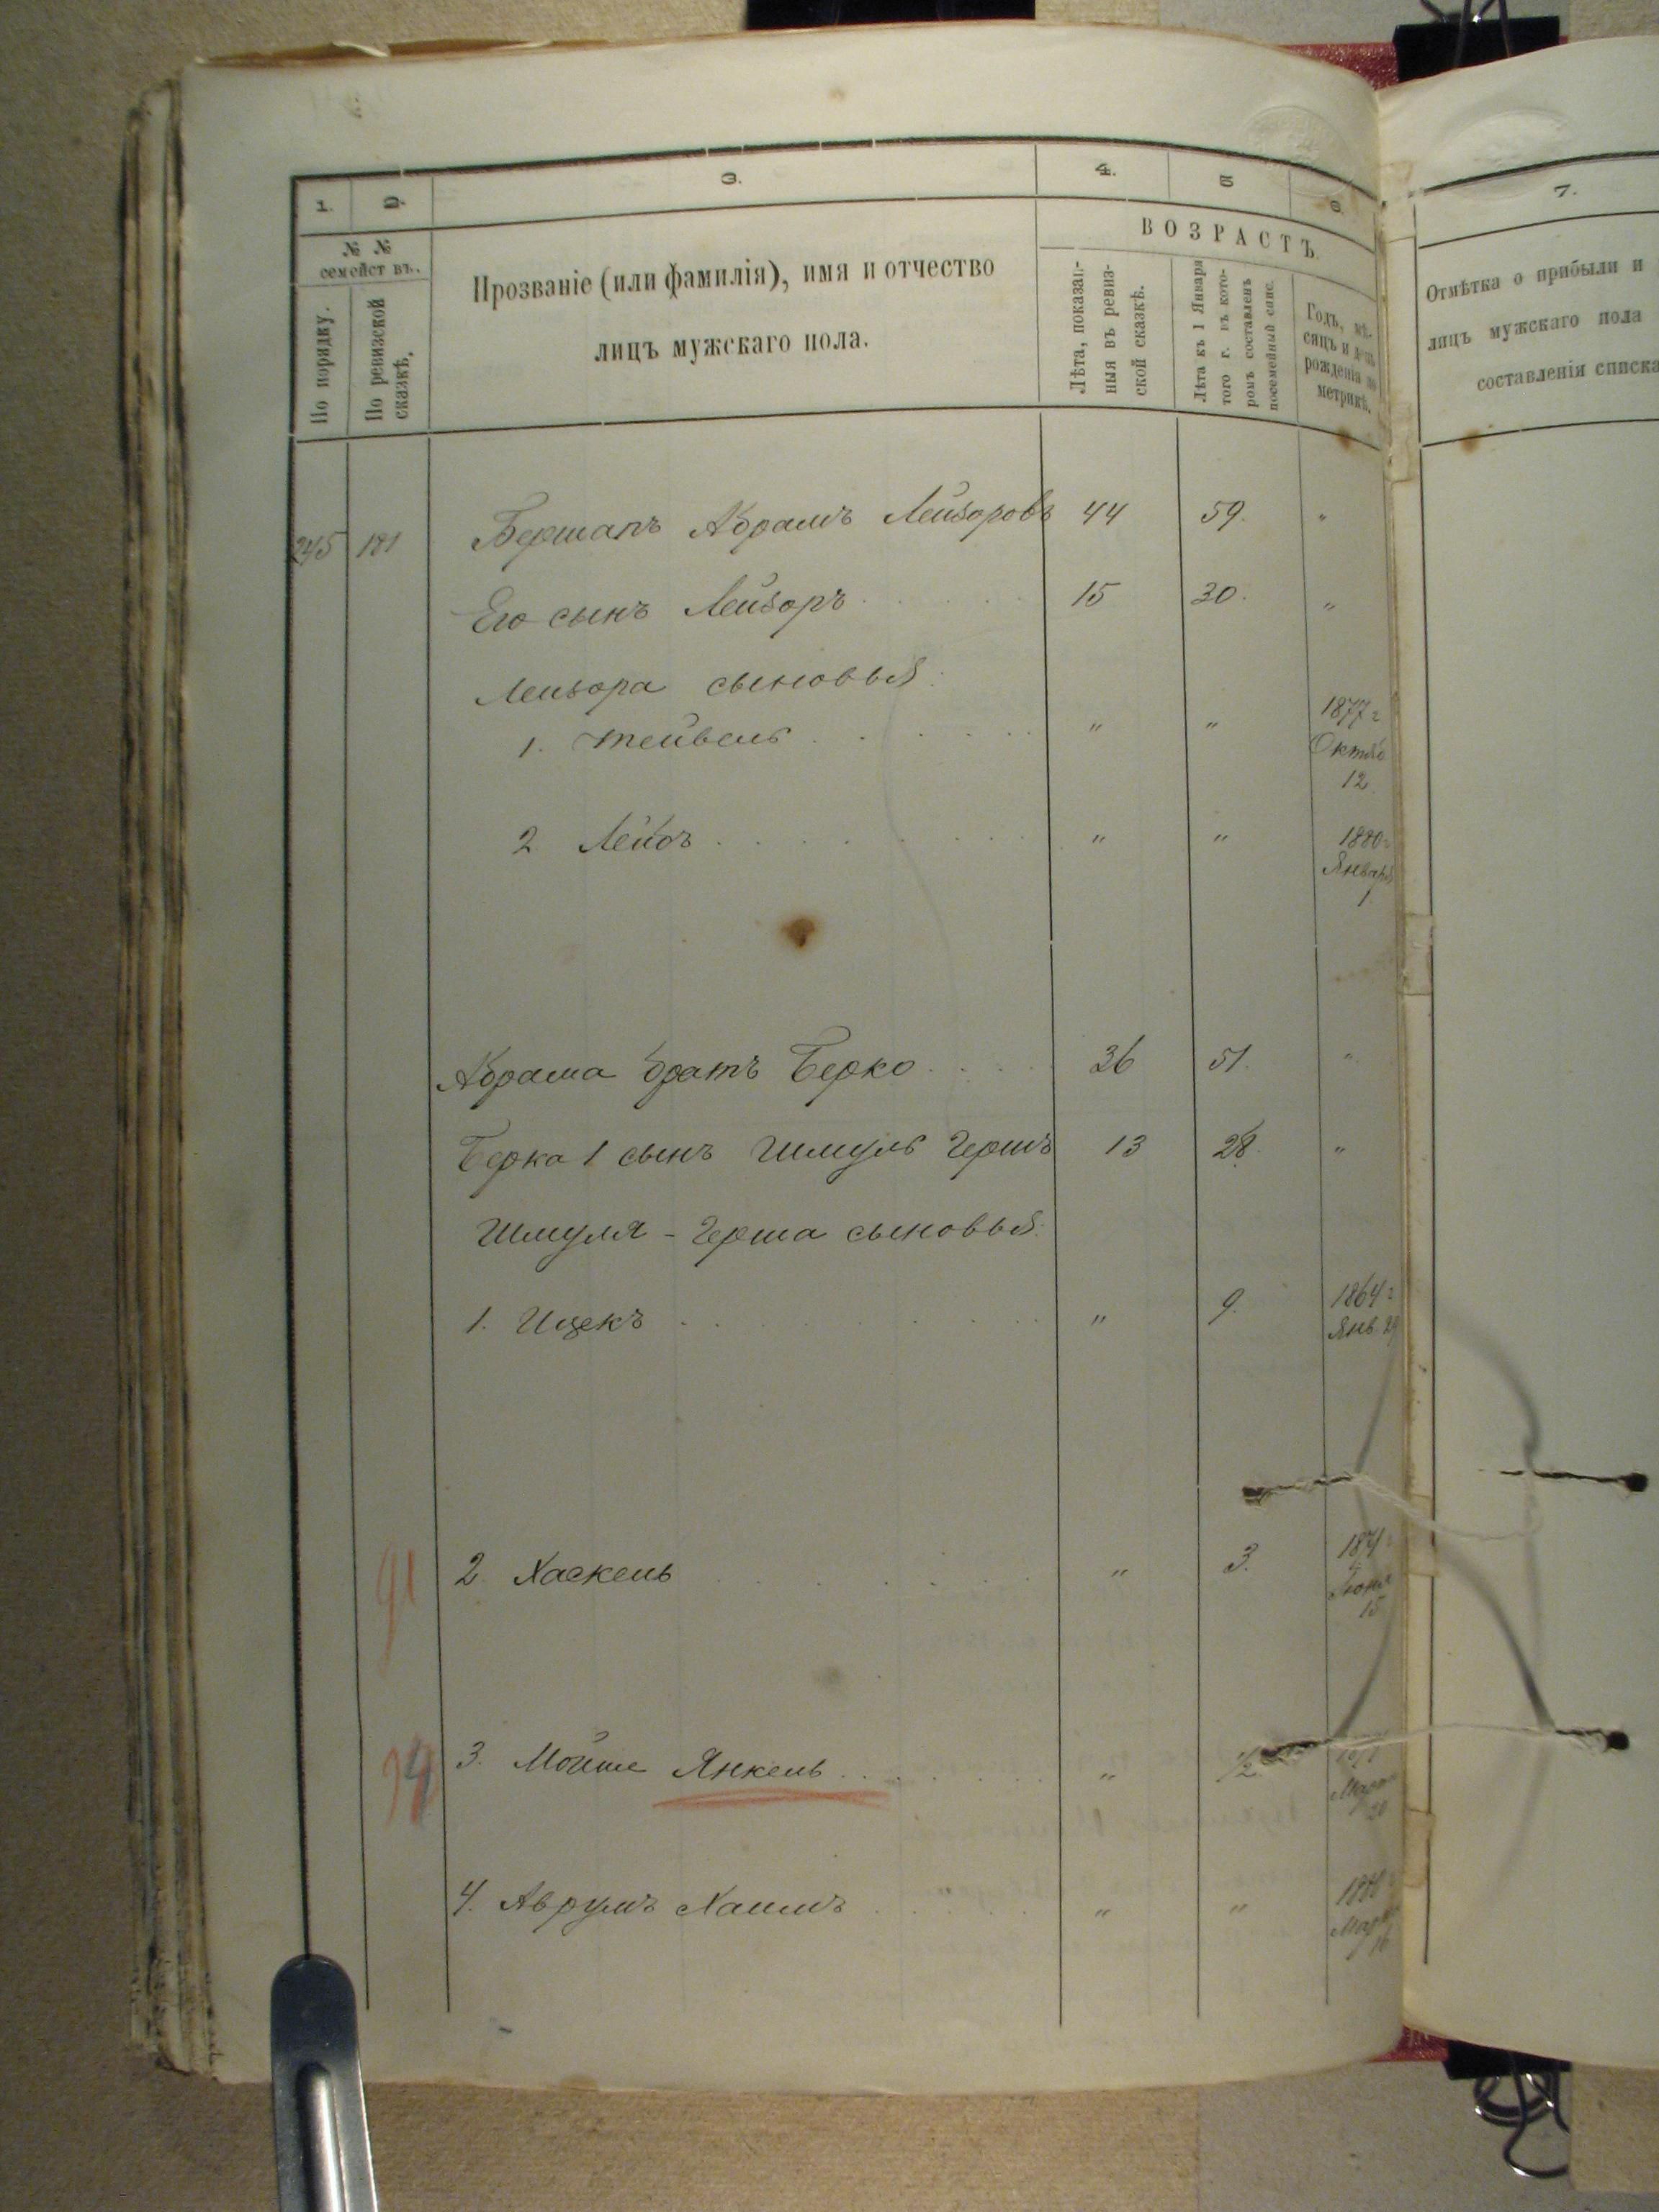 1. 2. 3. 4. 5 6. 7.
№ №
семействъ.
По порядку.
По ревизской
сказкѣ.
Прозваніе (или фамилія), имя и отчество
лицъ мужскаго пола.
ВОЗРАСТЪ.
Лѣта, показан-
ныя въ ревиз-
ской сказкѣ.
Лѣта къ 1 Января
того г. въ кото-
ромъ составленъ
посемейный спис.
Годъ, мѣ-
сяцъ и день
рожденія по
метрикѣ.
Отмѣтка о прибыли и
лицъ мужскаго пола
составленія списка
245 181 Бершапъ Абрамъ Лейзоровъ 44 59. "
Его сынъ Лейзоръ 15 30. "
Лейзора сыновья:
1. Тейвель " " 1877 г
Октяб
12.
2. Лейбъ " " 1880 г
Января
1
Абрама братъ Берко 36 51. "
Берка 1 сынъ Шмуль Гершъ 13 28. "
Шмуля - Герша сыновья:
1. Ицекъ " 9. 1864 г
Янв. 29
91 2. Хаскель " 3. 1871 г
Іюня
15
3. Мойше Янкель " 1/2
Марта
20
4. Аврумъ Хаимъ " " 1880
Марта
16